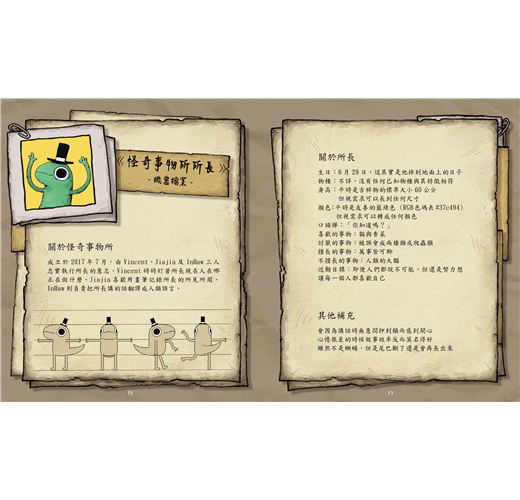 《怪奇事物所所長》
-機密檔案-
關於怪奇事物所
成立於 2017 年 7 月,由 Vincent、Jiajia 及 InHaw 三人
忠實執行所長的意志。Vincent 時時盯著所長現在人在哪
正在做什麼,Jiajia 喜歡用畫筆記錄所長的所見所聞、
InHaw 則負責把所長講的話翻譯成人類語言。
12
關於所長
生日:6 月 29 日,這其實是他掉到地面上的日子
物種:不詳,沒有任何已知物種與其特徵相符
身高:平時是吉祥物的標準大小 60 公分
但視需求可以長到任何尺寸
顏色:平時是友善的藍綠色(RGB色碼表#37c494)
但視需求可以轉成任何顏色
口頭禪:「你知道嗎?」
喜歡的事物:貓與香菜
討厭的事物:被誤會成兩棲類或爬蟲類
擅長的事物:萬事皆可聊
不擅長的事物:人類的大腦
近期目標:即使人們都說不可能,但還是努力想
讓每一個人都喜歡自己
其他補充
會因為講話時無意間押到韻而感到開心
心情很差的時候做事效率反而莫名得好
雖然不是蜥蜴,但是尾巴斷了還是會再長出來
13